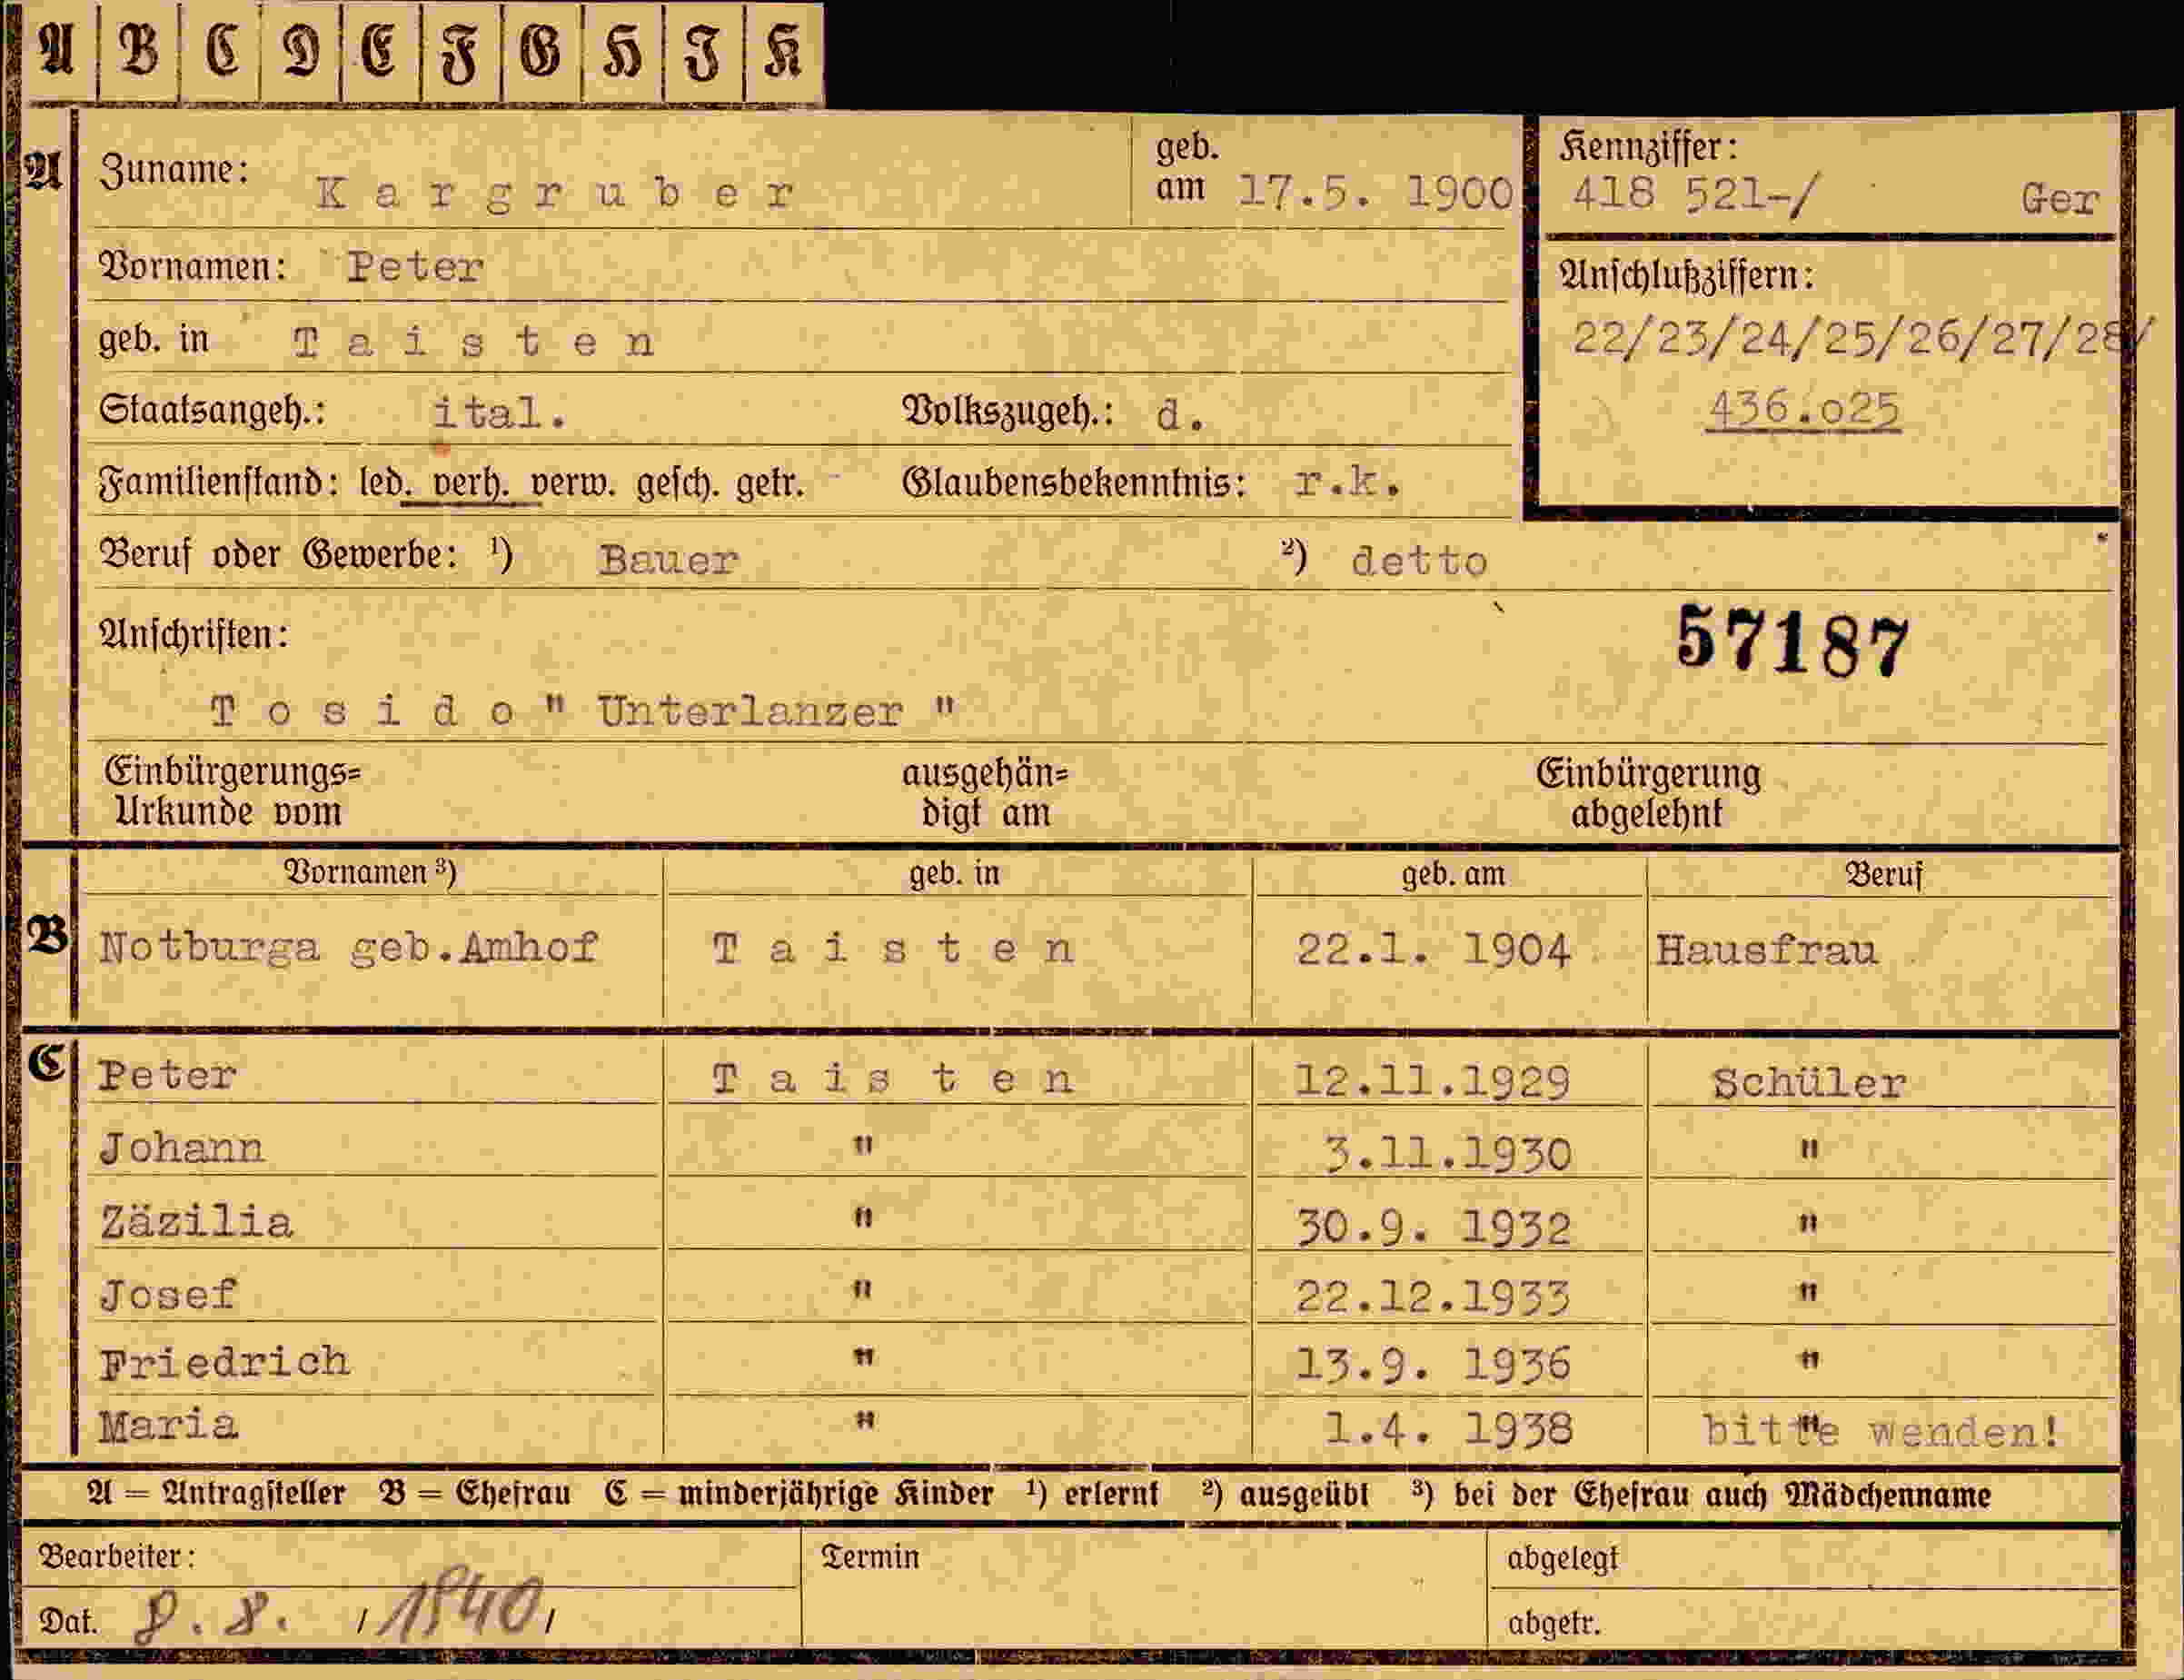 A B C D E F G H I K
A Zuname: Kargruber geb. am 17.5. 1900
Kennziffer:
418 521-/ Ger
Vornamen: Peter
Anschlußziffern:
22/23/24/25/26/27/28/
436.025
geb. in Taisten
Staatsangeh.: ital. Volkszugeh.: d.
Familienstand: led. verh. verw. gesch. getr. Glaubensbekenntnis: r.k.
Beruf oder Gewerbe: ¹) Bauer ²) detto
Anschriften: 57187
Tosido " Unterlanzer "
Einbürgerungs= ausgehän= Einbürgerung
Urkunde vom digt am abgelehnt
Vornamen ³) geb. in geb. am Beruf
B Notburga geb.Amhof Taisten 22.1. 1904 Hausfrau
C Peter Taisten 12.11.1929 Schüler
Johann " 3.11.1930 "
Zäzilia " 30.9. 1932 "
Josef " 22.12.1933 "
Friedrich " 13.9. 1936 "
Maria " 1.4. 1938 " bitte wenden!
A = Antragsteller B = Ehefrau C = minderjährige Kinder ¹) erlernt ²) ausgeübt ³) bei der Ehefrau auch Mädchenname
Bearbeiter: Termin abgelegt
Dat. 8.8. /1940/ abgetr.